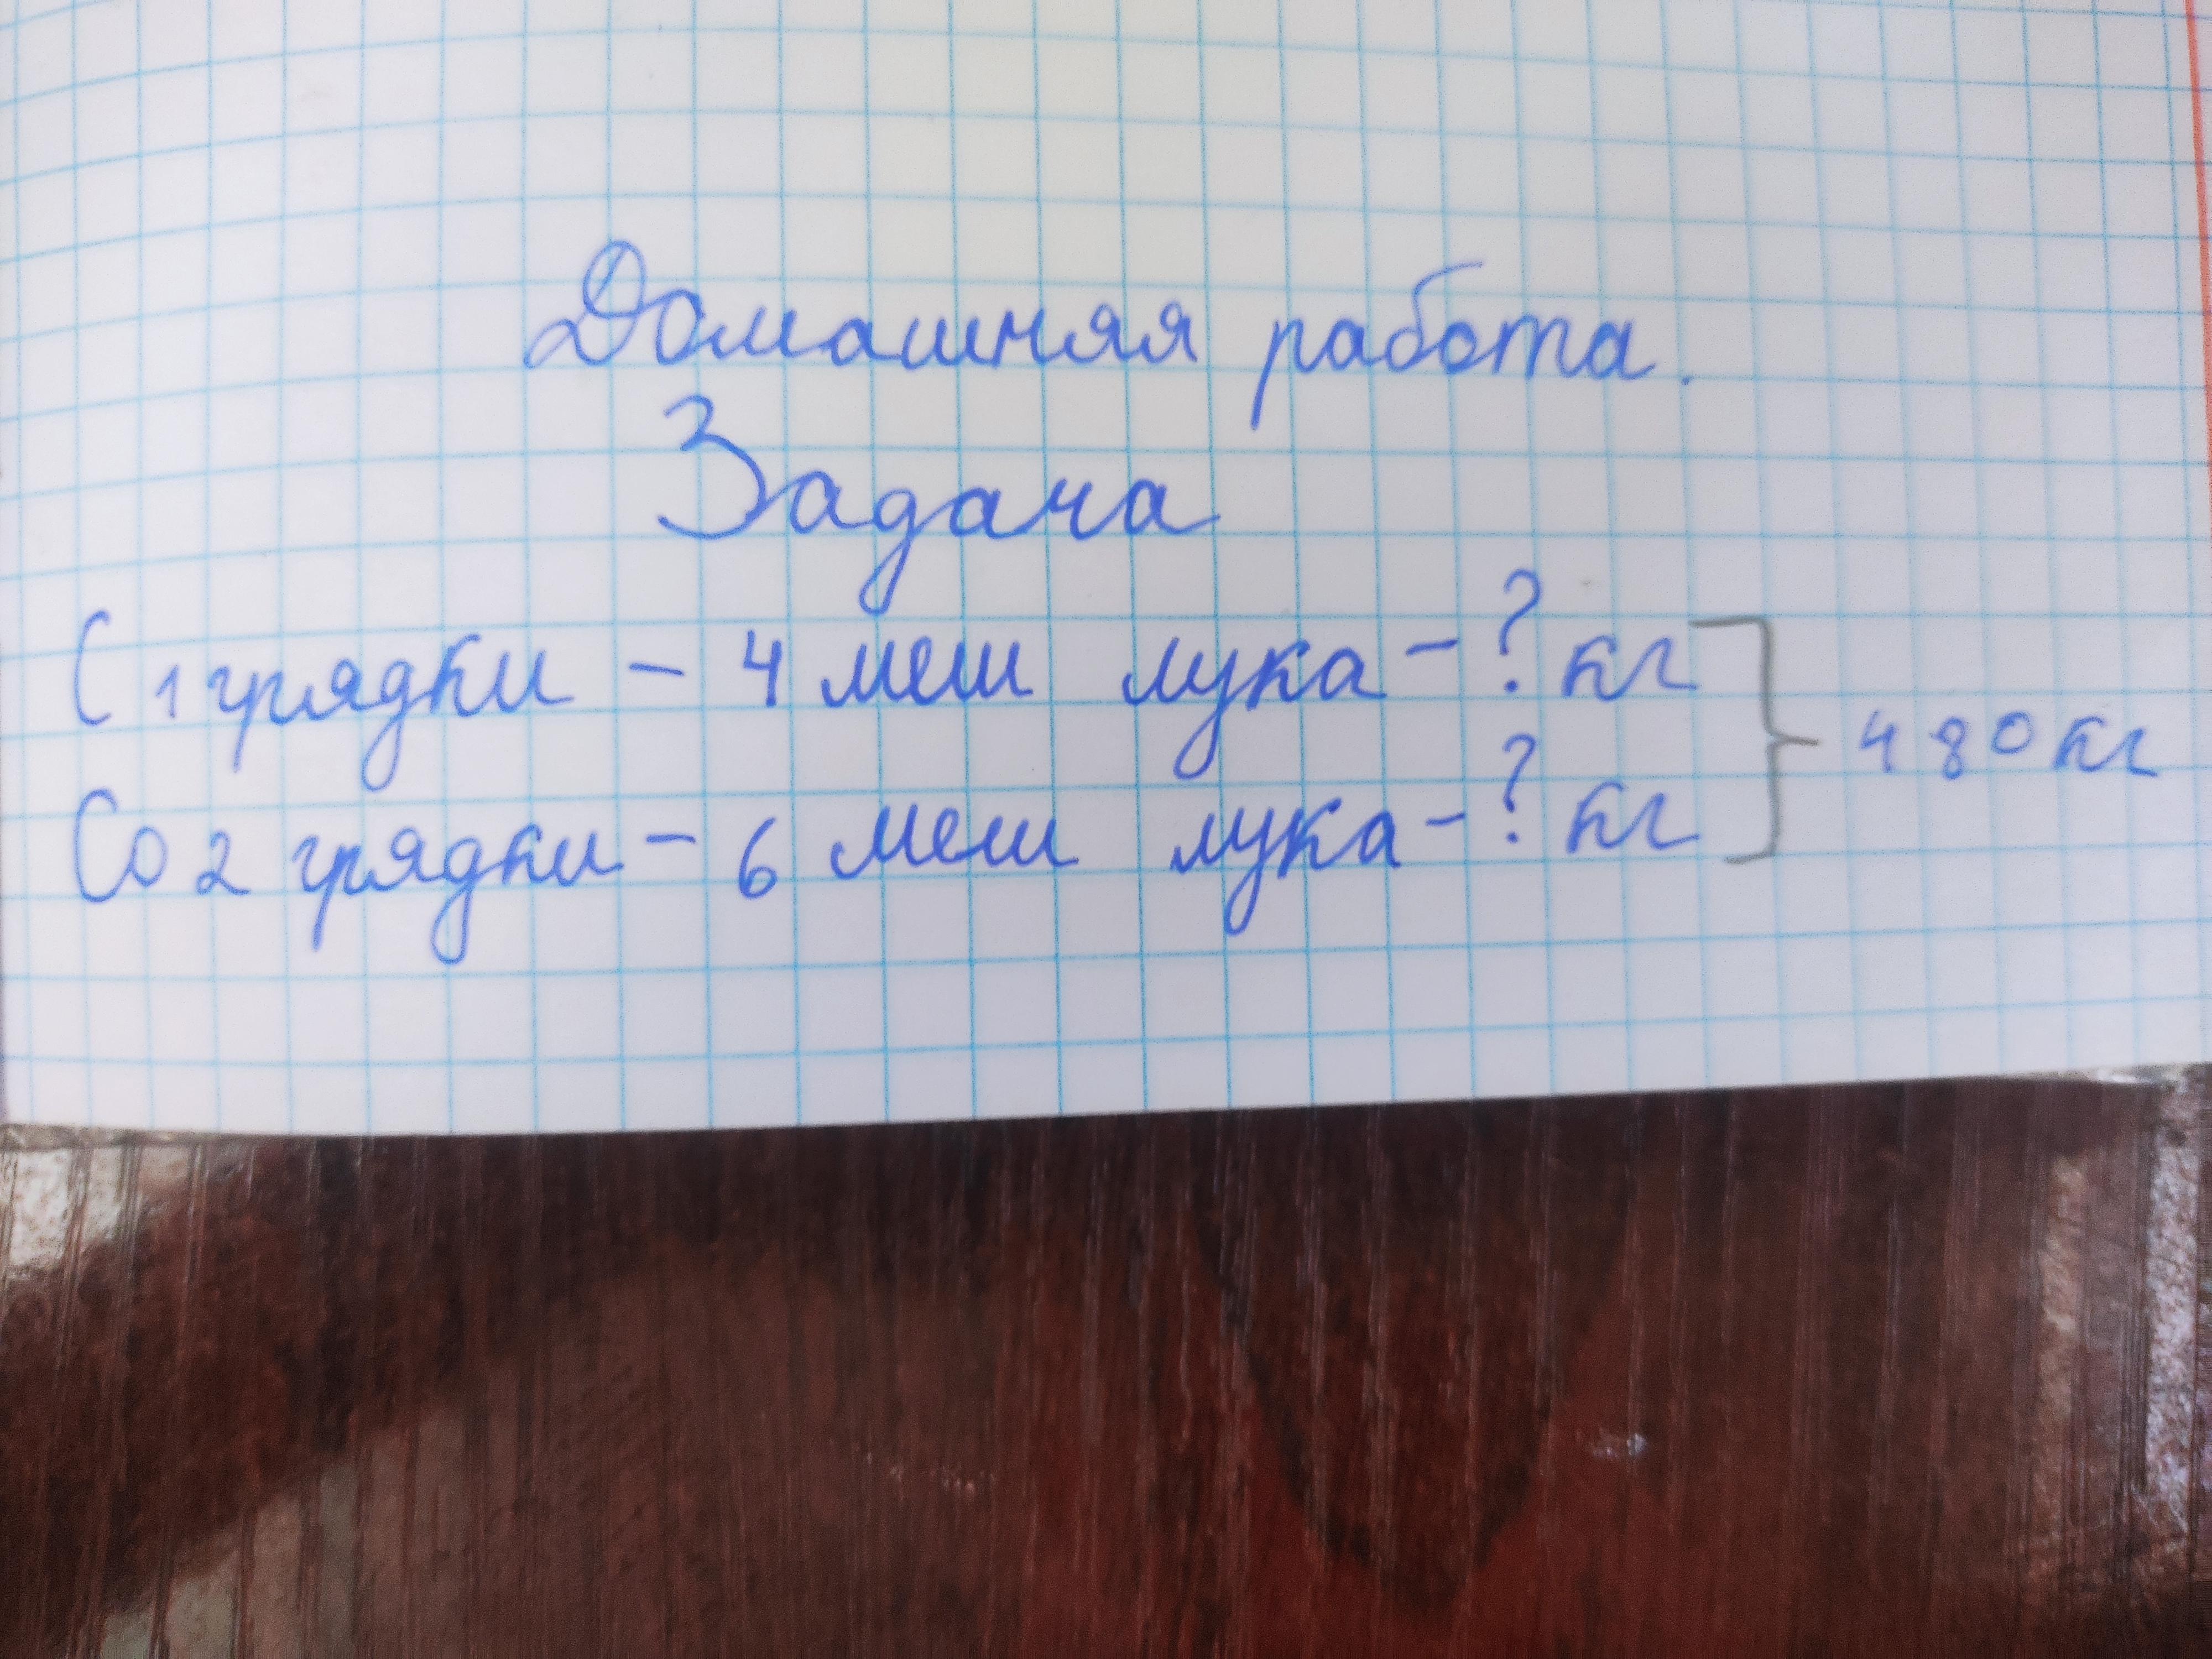 Домашняя работа.
Задача
С 1 грядки - 4 меш лука - ? кг
Со 2 грядки - 6 меш лука - ? кг } 480 кг